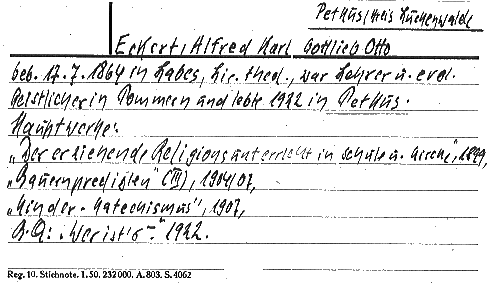 Petkus, Kreis Luckenwalde
Eckert, Alfred Karl Gottlieb Otto
geb. 17. 7. 1864 in Labes, Lic. theol., war Lehrer u. evgl.
Geistlicher in Pommern und lebte 1922 in Petkus.
Hauptwerke:
„Der erziehende Religionsunterricht in Schule u. Kirche", 1899,
„Bauernpredigten" (III), 1904/07,
„Kinder-Katechismus", 1907,
„Wer ist's -" 1922.
Reg. 10. Stichnote. 1. 50. 232 000. A. 803. S. 4062